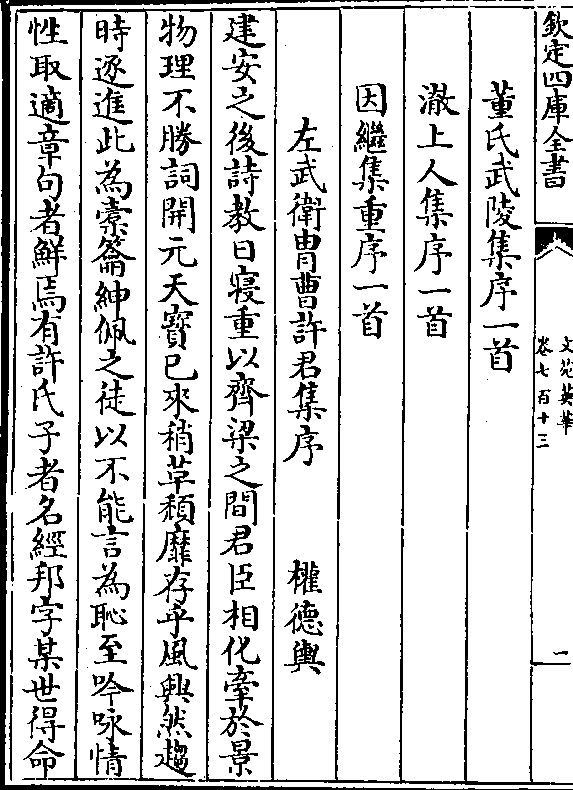 欽定四庫全書
文苑英華
卷七百十三
二
董氏武陵集序一首
澈上人集序一首
因繼集重序一首
左武衛胄曹許君集序　權德輿
建安之後詩教日寢重以齊梁之間君臣相化牽於景
物理不勝詞開元天寶已來稍革頽靡存乎風興然趨
時逐進此為橐籥紳佩之徒以不能言為恥至吟咏情
性取適章句者鮮焉有許氏子者名經邦字某世得命